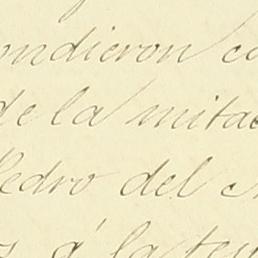 ondieron co
de la mitad
Pedro del
s á la